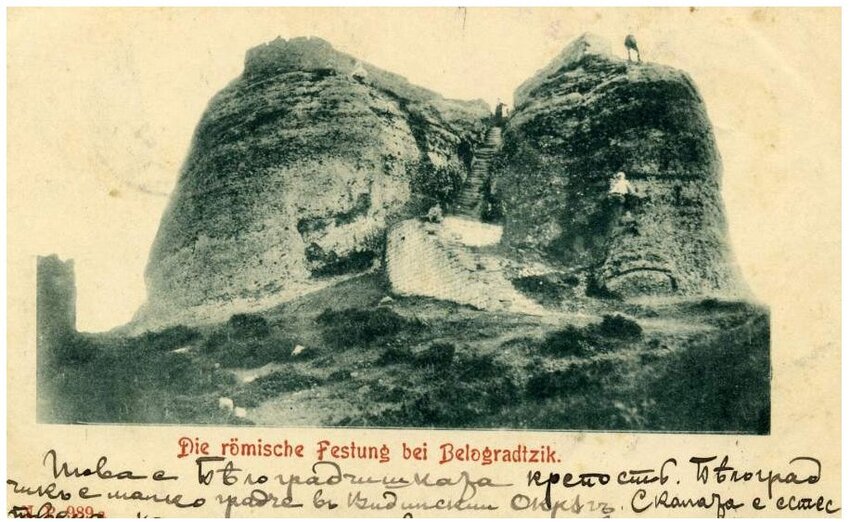 Die römische Festung bei Belogradtzik.
Това е Бѣлоградчишката крепость. Бѣлоград
чикъ е малко градче въ Видинский Окрѫгъ. Скалата е естес
989